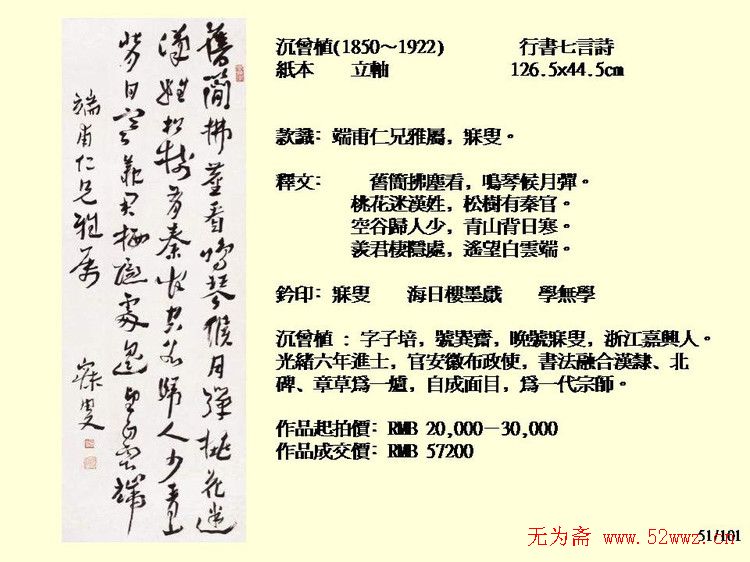 舊簡拂塵看鳴琴候月彈桃花迷
漢姓松樹有秦官空谷歸人少青山
背日寒羨君棲隱處遙望白雲端
端甫仁兄雅属
寐叟
沉曾植(1850～1922) 行書七言詩
紙本 立軸 126.5x44.5cm
款識: 端甫仁兄雅屬，寐叟。
釋文: 舊簡拂塵看，鳴琴候月彈。
桃花迷漢姓，松樹有秦官。
空谷歸人少，青山背日寒。
羨君棲隱處，遙望白雲端。
鈐印: 寐叟 海日樓墨戲 學無學
沉曾植 : 字子培，號異齋，晚號寐叟，浙江嘉興人。
光緒六年進士，官安徽布政使，書法融合漢隸、北
碑、章草爲一爐，自成面目，爲一代宗師。
作品起拍價: RMB 20,000－30,000
作品成交價: RMB 57200
无为斋 www.52wwz.cn
51/101